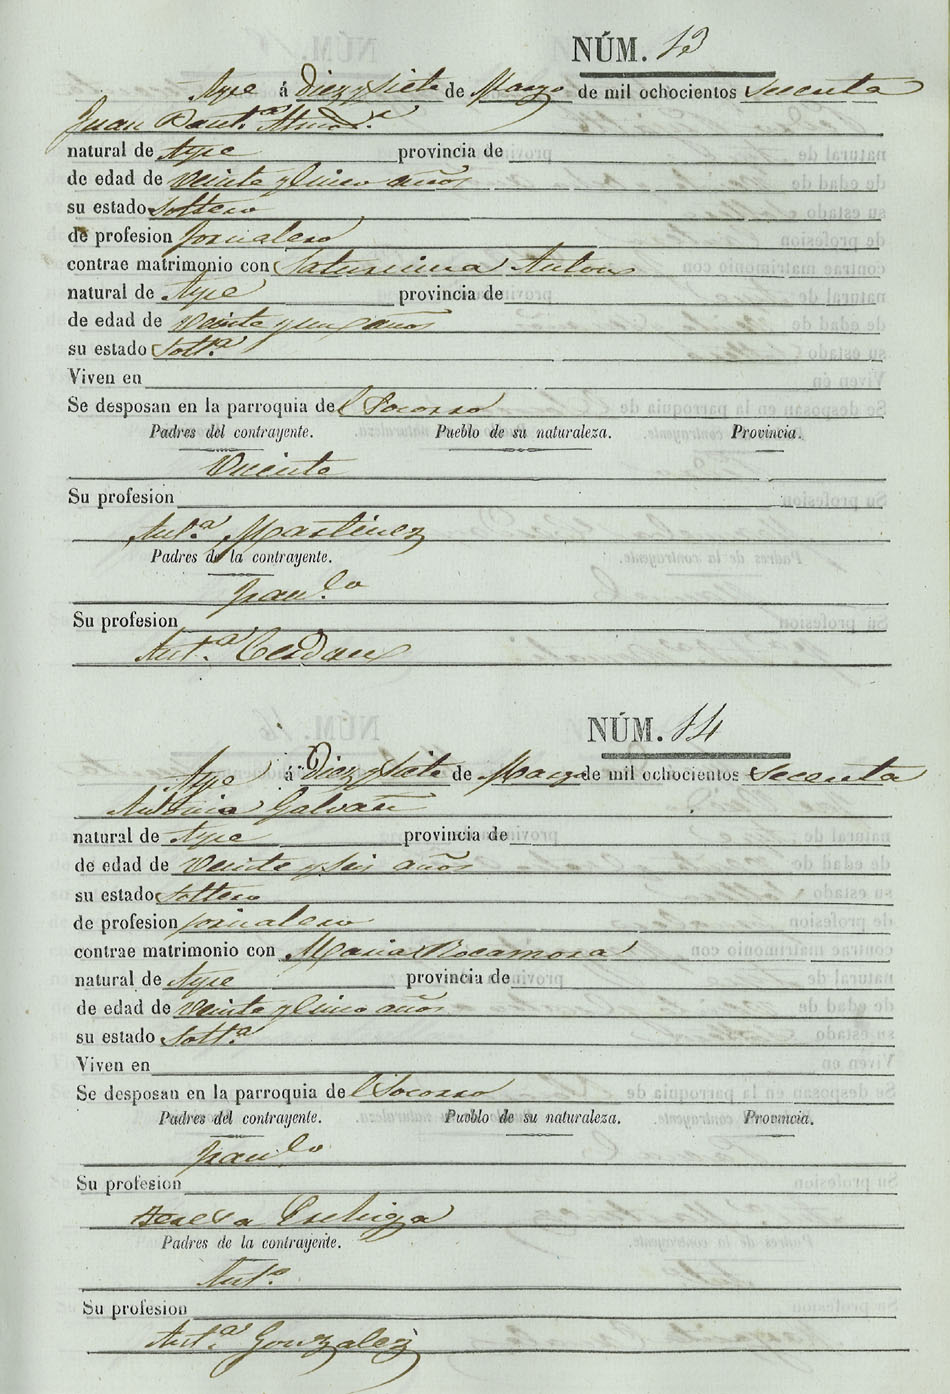 NÚM. 13
Aspe á Diez y Siete de Marzo de mil ochocientos Secenta
Juan Baut.ª
natural de Aspe provincia de
de edad de Veinte y Cinco años
su estado Soltero
de profesion Jornalero
contrae matrimonio con Saturnina Anton
natural de Aspe provincia de
de edad de Veinte y un años
su estado Solt.ª
Viven en
Se desposan en la parroquia del Socorro
Padres del contrayente. Pueblo de su naturaleza. Provincia.
Vicente
Su profesion
Ant.ª Martinez
Padres de la contrayente.
Fran.co
Su profesion
Ant.ª Cerdan
NÚM. 14
Aspe á Diez y Siete de Marzo de mil ochocientos Secenta
Antonio Galvañ
natural de Aspe provincia de
de edad de Veinte y Seis años
su estado Soltero
de profesion Jornalero
contrae matrimonio con Maria Rocamora
natural de Aspe provincia de
de edad de Veinte y Cinco años
su estado Solt.ª
Viven en
Se desposan en la parroquia del Socorro
Padres del contrayente. Pueblo de su naturaleza. Provincia.
Fran.co
Su profesion
Teresa
Padres de la contrayente.
Ant.º
Su profesion
Ant.ª Gonzalez